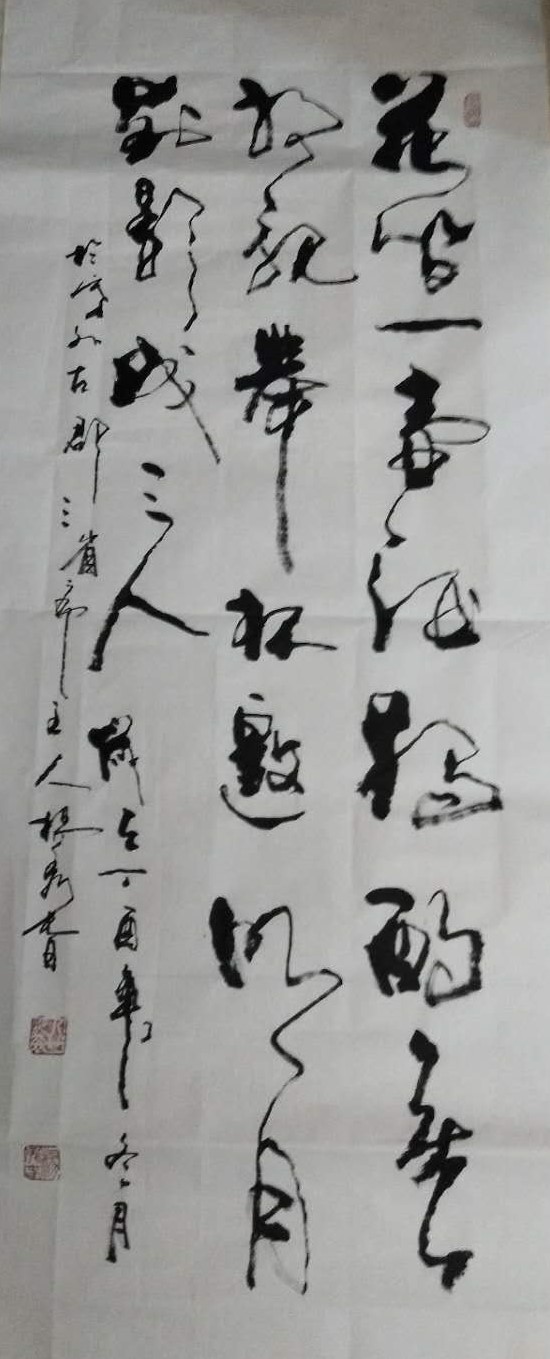 花間一壺酒獨酌無
相親舉杯邀明月
對影成三人 歲在丁酉年冬月
於塞外古郡三省齋主人楊